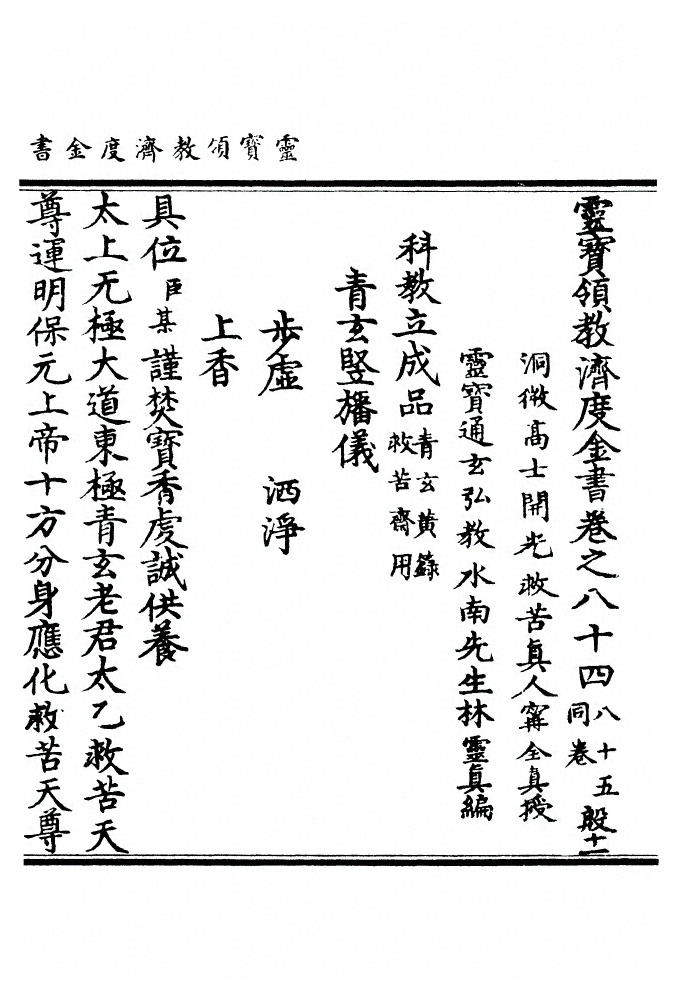 靈寶領教濟度金書
靈寶領教濟度金書卷之八十四 八十五同卷 殷十一
洞微高士開光救苦真人甯全真授
靈寶通玄弘教水南先生林靈真編
科教立成品 青玄黃籙救苦齋用
青玄竪旛儀
步虛 洒淨
上香
具位臣某謹焚寶香虔誠供養
太上无極大道東極青玄老君太乙救苦天
尊運明保元上帝十方分身應化救苦天尊